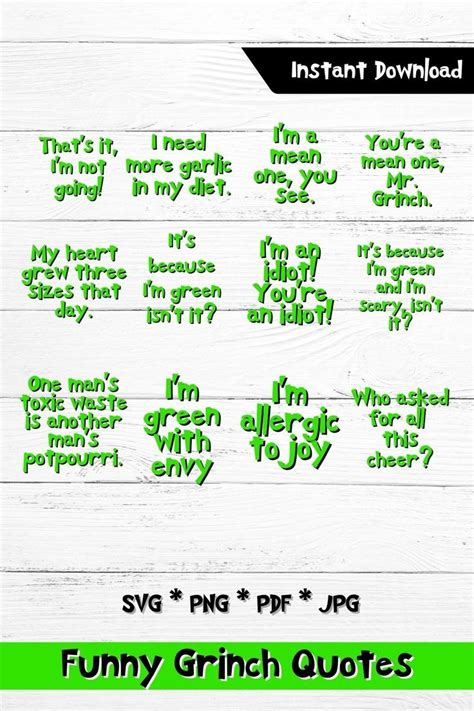 Instant Download
That's it,
I'm not
going!
I need
more garlic
in my diet.
I'm a
mean
one, you
see.
You're a
mean one,
Mr.
Grinch.
My heart
grew three
sizes that
day.
It's
because
I'm green
isn't it?
I'm an
idiot!
You're
an idiot!
It's because
I'm green
and I'm
scary, isn't
it?
One man's
toxic waste
is another
man's
potpourri.
I'm
green
with
envy
I'm
allergic
to joy
Who asked
for all
this
cheer?
SVG * PNG * PDF * JPG
Funny Grinch Quotes